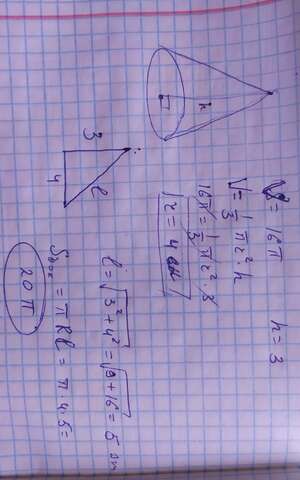 h
V = 16π h = 3
V = 1/3 πr² · h
16π = 1/3 πr² · 3
r = 4 см
3
4
l
l = √3² + 4² = √9 + 16 = 5 см
Sбок = πRl = π · 4 · 5 =
20π